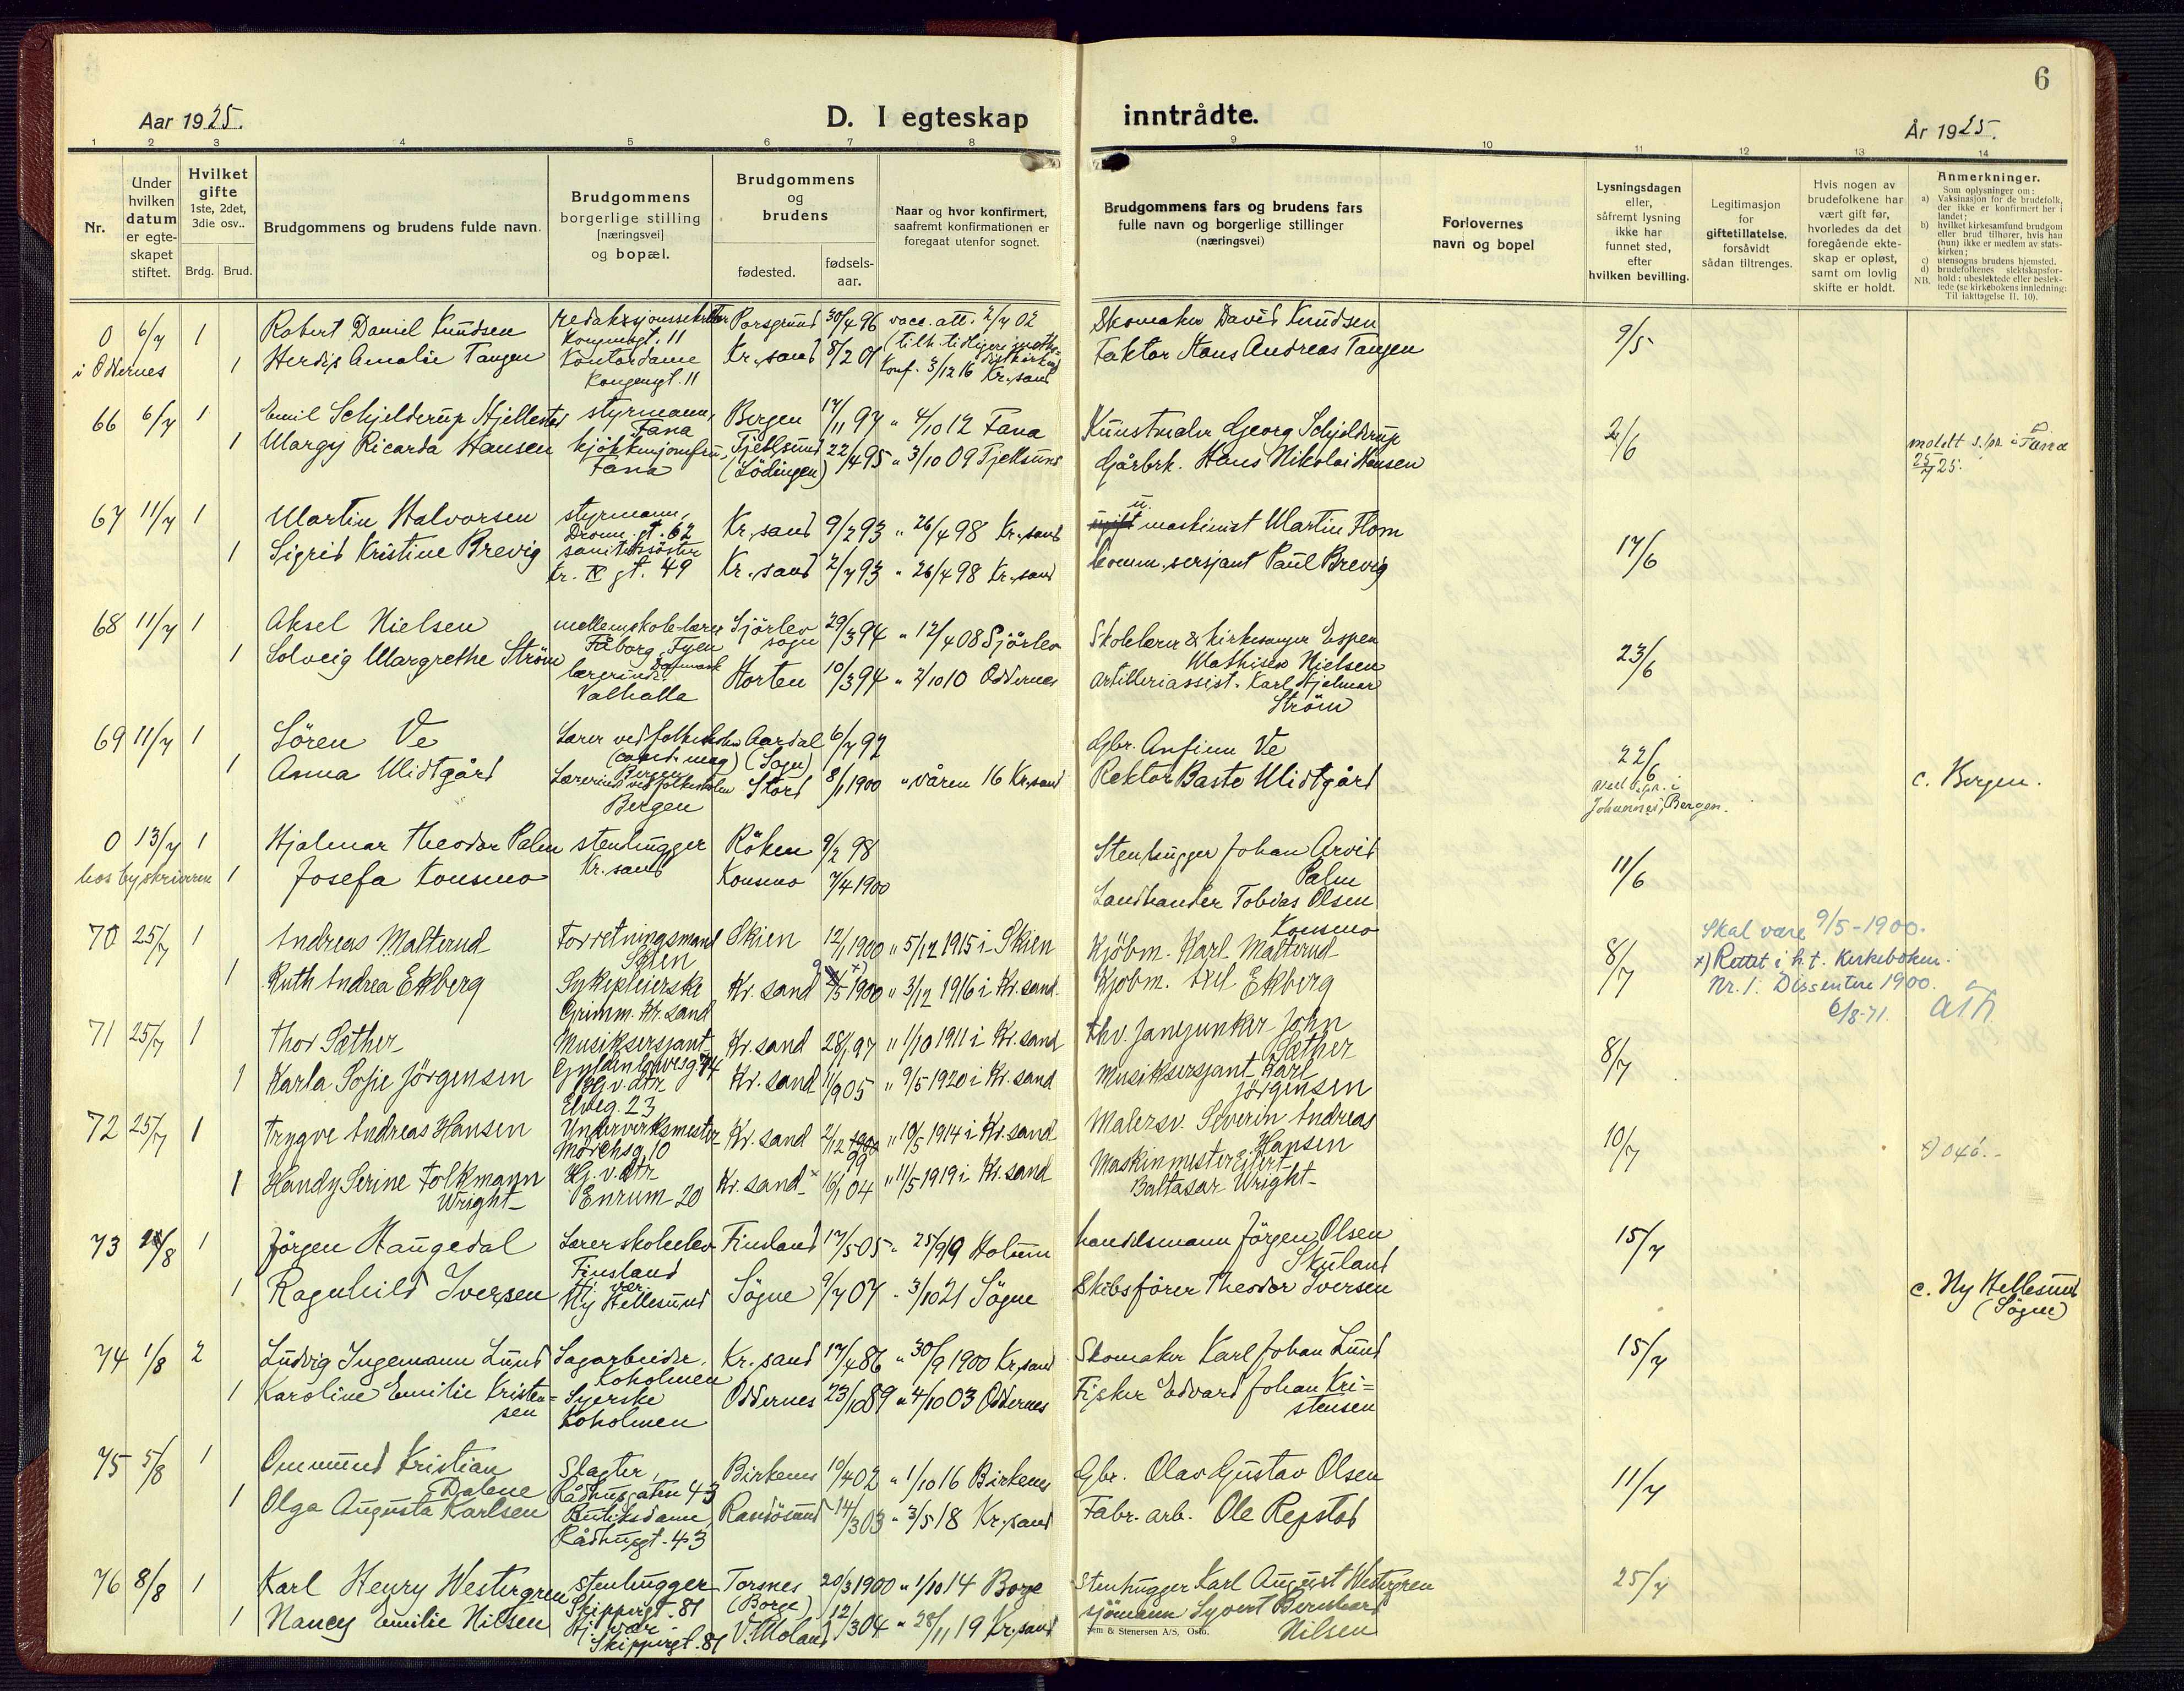 6
Aar 1925.
D. I egteskap inntrådte.
År 1925.
1 2 3 4 5 6 7 8 9 10 11 12 13 14
Nr.
Under hvilken datum er egte-skapet stiftet.
Hvilket gifte 1ste, 2det, 3die osv..
Brdg. Brud.
Brudgommens og brudens fulde navn.
Brudgommens borgerlige stilling [næringsvei] og bopæl.
Brudgommens og brudens
fødested.
fødsels-aar.
Naar og hvor konfirmert, saafremt konfirmationen er foregaat utenfor sognet.
Brudgommens fars og brudens fars fulle navn og borgerlige stillinger (næringsvei)
Forlovernes navn og bopel
Lysningsdagen eller, såfremt lysning ikke har funnet sted, efter hvilken bevilling.
Legitimasjon for giftetillatelse, forsåvidt sådan tiltrenges.
Hvis nogen av brudefolkene har vært gift før, hvorledes da det foregående ekte-skap er opløst, samt om lovlig skifte er holdt.
Anmerkninger.
Som oplysninger om:
a) Vaksinasjon for de brudefolk, der ikke er konfirmert her i landet;
b) hvilket kirkesamfund brudgom eller brud tilhører, hvis han (hun) ikke er medlem av stats-kirken;
c) utensogns brudens hjemsted.
d) brudefolkenes slektskapsfor-hold: ubeslektede eller beslek-tede (se kirkebokens innledning: Til iakttagelse II. 10).
NB.
0 6/7 1 Robert Daniel Knudsen redaksjonssekretær Kongensgt. 11 Porsgrund 30/4 96 vacc. att. 2/7 02 Skomaker David Knudsen 9/5
i Oddernes 1 Herdis Amalie Tangen Kontordame Kongensgt. 11 Kr.sand 8/2 01 Konf. 3/12 16 Kr.sand Faktor Hans Andreas Tangen
66 6/7 1 Emil Schjelderup Hjellestad styrmann, Fana Bergen 17/11 97 " 4/10 12 Fana Kunstmaler Georg Schjelderup 2/6 meldt s.pr. i Fana 25/7 25.
1 Margy Ricarda Hansen kjökkenjomfru, Fana Tjellsund (Lödingen) 22/4 95 " 3/10 09 Tjellsund Gårbrk. Hans Nikolai Hansen
67 11/7 1 Martin Halvorsen styrmann, Dronn. gt. 62 Kr.sand 9/2 93 " 26/4 98 Kr.sand u. maskinist Martin Flom 17/6
1 Sigrid Kristine Brevig sanitetssöster Kr. IV gt. 49 Kr.sand 2/7 93 " 26/4 98 Kr.sand komm. sersjant Paul Brevig
68 11/7 1 Aksel Nielsen mellemskole-lærer Fåborg, Fyen Danmark Sjörlev sogn 29/3 94 " 12/4 08 Sjörlev Skolelærer & kirkesanger Espen Mathisen Nielsen 23/6
1 Solveig Margrethe Ström lærerinde Valhalla Horten 10/3 94 " 2/10 10 Oddernes Artilleriassist. Karl Hjalmar Ström
69 11/7 1 Sören Ve Lærer ved folkeskolen (cand. mag) Bergen Aardal (Sogn) 6/7 97 Gbr. Anfinn Ve 22/6
1 Anna Midtgård Lærerinde ved folkeskolen Bergen Stord 8/1 1900 " våren 16 Kr.sand Rektor Basto Midtgård Johannes, Bergen. c. Bergen.
0 13/7 1 Hjalmar Theodor Palm stenhugger Kr.sand Röken 9/2 98 Stenhugger Johan Arvid Palm 11/6
hos byskriveren 1 Josefa Konsmo Konsmo 7/4 1900 Landhandler Tobias Olsen Konsmo
70 25/7 1 Andreas Malterud Forretningsmand Skien Skien 12/1 1900 " 5/12 1915 i Skien Kjöbm. Karl Malterud 8/7 Skal være 9/5-1900.
1 Ruth Andrea Ekberg Sykepleierske Grimm. Kr.sand Kr.sand 9/5 1900 x) " 3/12 1916 i Kr.sand. Kjöbm. Axel Ekberg x) Rettet i h.t. Kirkeboken. Nr. 1. Dissentere 1900. 6/8-71.
71 25/7 1 Thor Sæther Musiksersjant Gyldenlövesg. 74 Kr.sand 28/1 97 " 1/10 1911 i Kr.sand fhv. Janljunker John Sæther 8/7
1 Karla Sofie Jörgensen Hj.v.dtr Elveg. 23 Kr.sand 11/9 05 " 9/5 1920 i Kr.sand Musiksersjant Karl Jörgensen
72 25/7 1 Trygve Andreas Hansen Underverksmester Mörchsg 10 Kr.sand 2/12 99 " 10/5 1914 i Kr.sand Malersv. Severin Andreas Hansen 10/7
1 Handy Serine Folkmann Wright Hj.v.dtr Enrum 20 Kr.sand 16/1 04 " 11/5 1919 i Kr.sand Maskinmester Eilert Baltasar Wright
73 1/8 1 Jörgen Haugedal Lærerskoleelev Finsland Finsland 17/5 05 " 25/9 19 Holum handelsmann Jörgen Olsen Skuland 15/7
1 Ragnhild Iversen Hj. vær. Ny Hellesund Sögne 9/7 07 " 3/10 21 Sögne Skibsförer Theodor Iversen c. Ny Hellesund (Sögne)
74 1/8 2 Ludvig Ingemann Lund Sagarbeider, Koholmen Kr.sand 17/4 86 " 30/9 1900 Kr.sand Skomaker Karl Johan Lund 15/7
1 Karoline Emilie Kristen=sen Syerske Koholmen Oddernes 23/10 89 " 4/10 03 Oddernes Fisker Edvard Johan Kri=stensen
75 5/8 1 Ommund Kristian Dalene Slagter, Rådhusgaten 43 Birkenes 10/4 02 " 1/10 16 Birkenes Gbr. Olav Gustav Olsen 11/7
1 Olga Augusta Karlsen Butiksdame Rådhusgt. 43 Randösund 14/3 03 " 3/5 18 Kr.sand Fabr. arb. Ole Repstad
76 8/8 1 Karl Henry Westergren stenhugger Skippergt. 81 Torsnes (Borge) 20/3 1900 " 1/10 14 Borge Stenhugger Karl August Westergren 25/7
1 Nancy Emilie Nilsen Hj. vær. Skippergt. 81 V. Moland 12/3 04 " 28/11 19 Kr.sand sjömann Syvert Bernhard Nilsen
Sem & Stenersen A/S, Oslo.